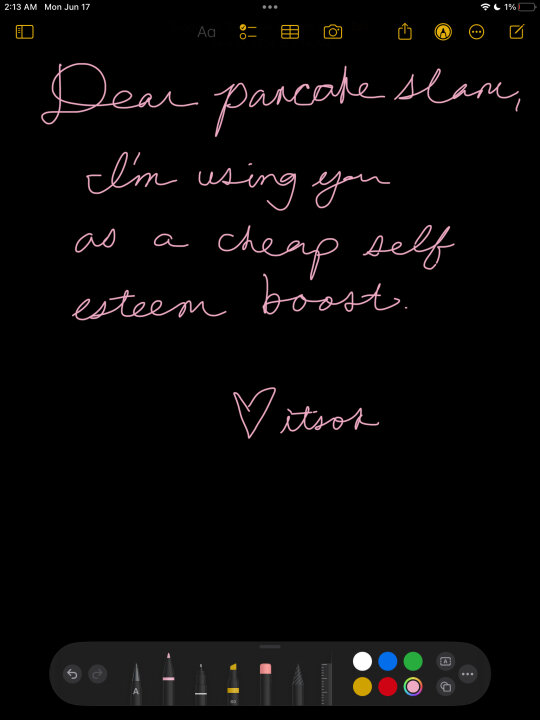 2:13 AM Mon Jun 17 1%
Aa
Dear pancake slam,
I'm using you
as a cheap self
esteem boost.
♡ itsoh
A
80
A